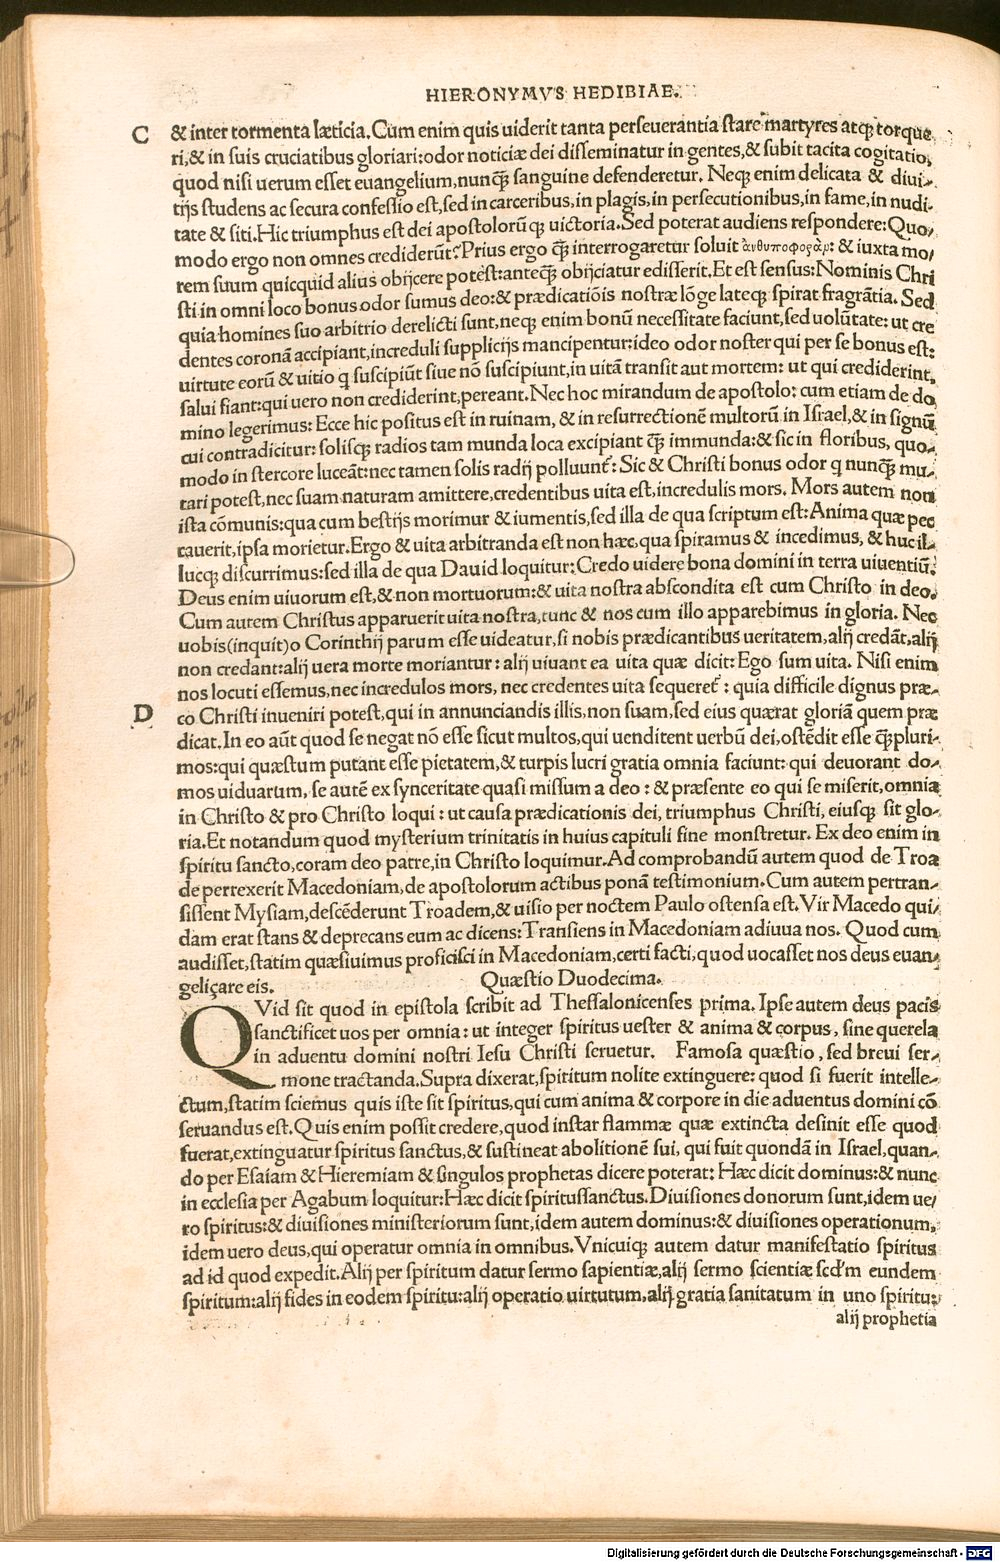 HIERONYMVS HEDIBIAE.
C & inter tormenta læticia. Cum enim quis uiderit tanta perseuerantia stare martyres atqꝫ torque
ri, & in suis cruciatibus gloriari: odor noticiæ dei disseminatur in gentes, & subit tacita cogitatio,
quod nisi uerum esset euangelium, nunqꝫ̃ sanguine defenderetur. Neqꝫ enim delicata & diui-
tijs studens ac secura confessio est, sed in carceribus, in plagis, in persecutionibus, in fame, in nudi-
tate & siti. Hic triumphus est dei apostolorũ qꝫ uictoria. Sed poterat audiens respondere: Quo/
modo ergo non omnes crediderũt? Prius ergo qꝫ̃ interrogaretur soluit ἀνθυποφορὰν: & iuxta mo/
rem suum quicquid alius obijcere potest: anteqꝫ̃ obijciatur edisserit. Et est sensus: Nominis Chri
sti in omni loco bonus odor sumus deo: & prædicatiõis nostræ lõge lateqꝫ spirat fragrãtia. Sed
quia homines suo arbitrio derelicti sunt, neqꝫ enim bonũ necessitate faciunt, sed uolũtate: ut cre
dentes coronã accipiant, increduli supplicijs mancipentur: ideo odor noster qui per se bonus est:
uirtute eorũ & uitio q suscipiũt siue nõ suscipiunt, in uitã transit aut mortem: ut qui crediderint,
salui fiant: qui uero non crediderint, pereant. Nec hoc mirandum de apostolo: cum etiam de do
mino legerimus: Ecce hic positus est in ruinam, & in resurrectionẽ multorũ in Israel, & in signũ
cui contradicitur: solisqꝫ radios tam munda loca excipiant qꝫ̃ immunda: & sic in floribus, quo-
modo in stercore luceãt: nec tamen solis radij polluunt᷑: Sic & Christi bonus odor q nunqꝫ̃ mu-
tari potest, nec suam naturam amittere, credentibus uita est, incredulis mors. Mors autem non
ista cõmunis: qua cum bestijs morimur & iumentis, sed illa de qua scriptum est: Anima quæ pec
cauerit, ipsa morietur. Ergo & uita arbitranda est non hæc, qua spiramus & incedimus, & huc il-
lucqꝫ discurrimus: sed illa de qua Dauid loquitur: Credo uidere bona domini in terra uiuentiũ.
Deus enim uiuorum est, & non mortuorum: & uita nostra abscondita est cum Christo in deo.
Cum autem Christus apparuerit uita nostra, tunc & nos cum illo apparebimus in gloria. Nec
uobis (inquit) o Corinthij parum esse uideatur, si nobis prædicantibus ueritatem, alij credãt, alij
non credant: alij uera morte moriantur: alij uiuant ea uita quæ dicit: Ego sum uita. Nisi enim
nos locuti essemus, nec incredulos mors, nec credentes uita sequeret᷑: quia difficile dignus præ-
D co Christi inueniri potest, qui in annunciandis illis, non suam, sed eius quærat gloriã quem præ
dicat. In eo aũt quod se negat nõ esse sicut multos, qui uenditent uerbũ dei, ostẽdit esse qꝫ̃ pluri-
mos: qui quæstum putant esse pietatem, & turpis lucri gratia omnia faciunt: qui deuorant do-
mos uiduarum, se autẽ ex synceritate quasi missum a deo: & præsente eo qui se miserit, omnia
in Christo & pro Christo loqui: ut causa prædicationis dei, triumphus Christi, eiusqꝫ sit glo-
ria. Et notandum quod mysterium trinitatis in huius capituli fine monstretur. Ex deo enim in
spiritu sancto, coram deo patre, in Christo loquimur. Ad comprobandũ autem quod de Troa
de perrexerit Macedoniam, de apostolorum actibus ponã testimonium. Cum autem pertran-
sissent Mysiam, descẽderunt Troadem, & uisio per noctem Paulo ostensa est. Vir Macedo qui/
dam erat stans & deprecans eum ac dicens: Transiens in Macedoniam adiuua nos. Quod cum
audisset, statim quæsiuimus proficisci in Macedoniam, certi facti, quod uocasset nos deus euan-
geliçare eis. Quæstio Duodecima.
QVid sit quod in epistola scribit ad Thessalonicenses prima. Ipse autem deus pacis
sanctificet uos per omnia: ut integer spiritus uester & anima & corpus, sine querela
in aduentu domini nostri Iesu Christi seruetur. Famosa quæstio, sed breui ser-
mone tractanda. Supra dixerat, spiritum nolite extinguere: quod si fuerit intelle-
ctum, statim sciemus quis iste sit spiritus, qui cum anima & corpore in die aduentus domini cõ
seruandus est. Quis enim possit credere, quod instar flammæ quæ extincta desinit esse quod
fuerat, extinguatur spiritus sanctus, & sustineat abolitionẽ sui, qui fuit quondã in Israel, quan-
do per Esaiam & Hieremiam & singulos prophetas dicere poterat: Hæc dicit dominus: & nunc
in ecclesia per Agabum loquitur: Hæc dicit spiritussanctus. Diuisiones donorum sunt, idem ue/
ro spiritus: & diuisiones ministeriorum sunt, idem autem dominus: & diuisiones operationum,
idem uero deus, qui operatur omnia in omnibus. Vnicuiqꝫ autem datur manifestatio spiritus
ad id quod expedit. Alij per spiritum datur sermo sapientiæ, alij sermo scientiæ scd'm eundem
spiritum: alij fides in eodem spiritu: alij operatio uirtutum, alij gratia sanitatum in uno spiritu:
alij prophetia
Digitalisierung gefördert durch die Deutsche Forschungsgemeinschaft - DFG